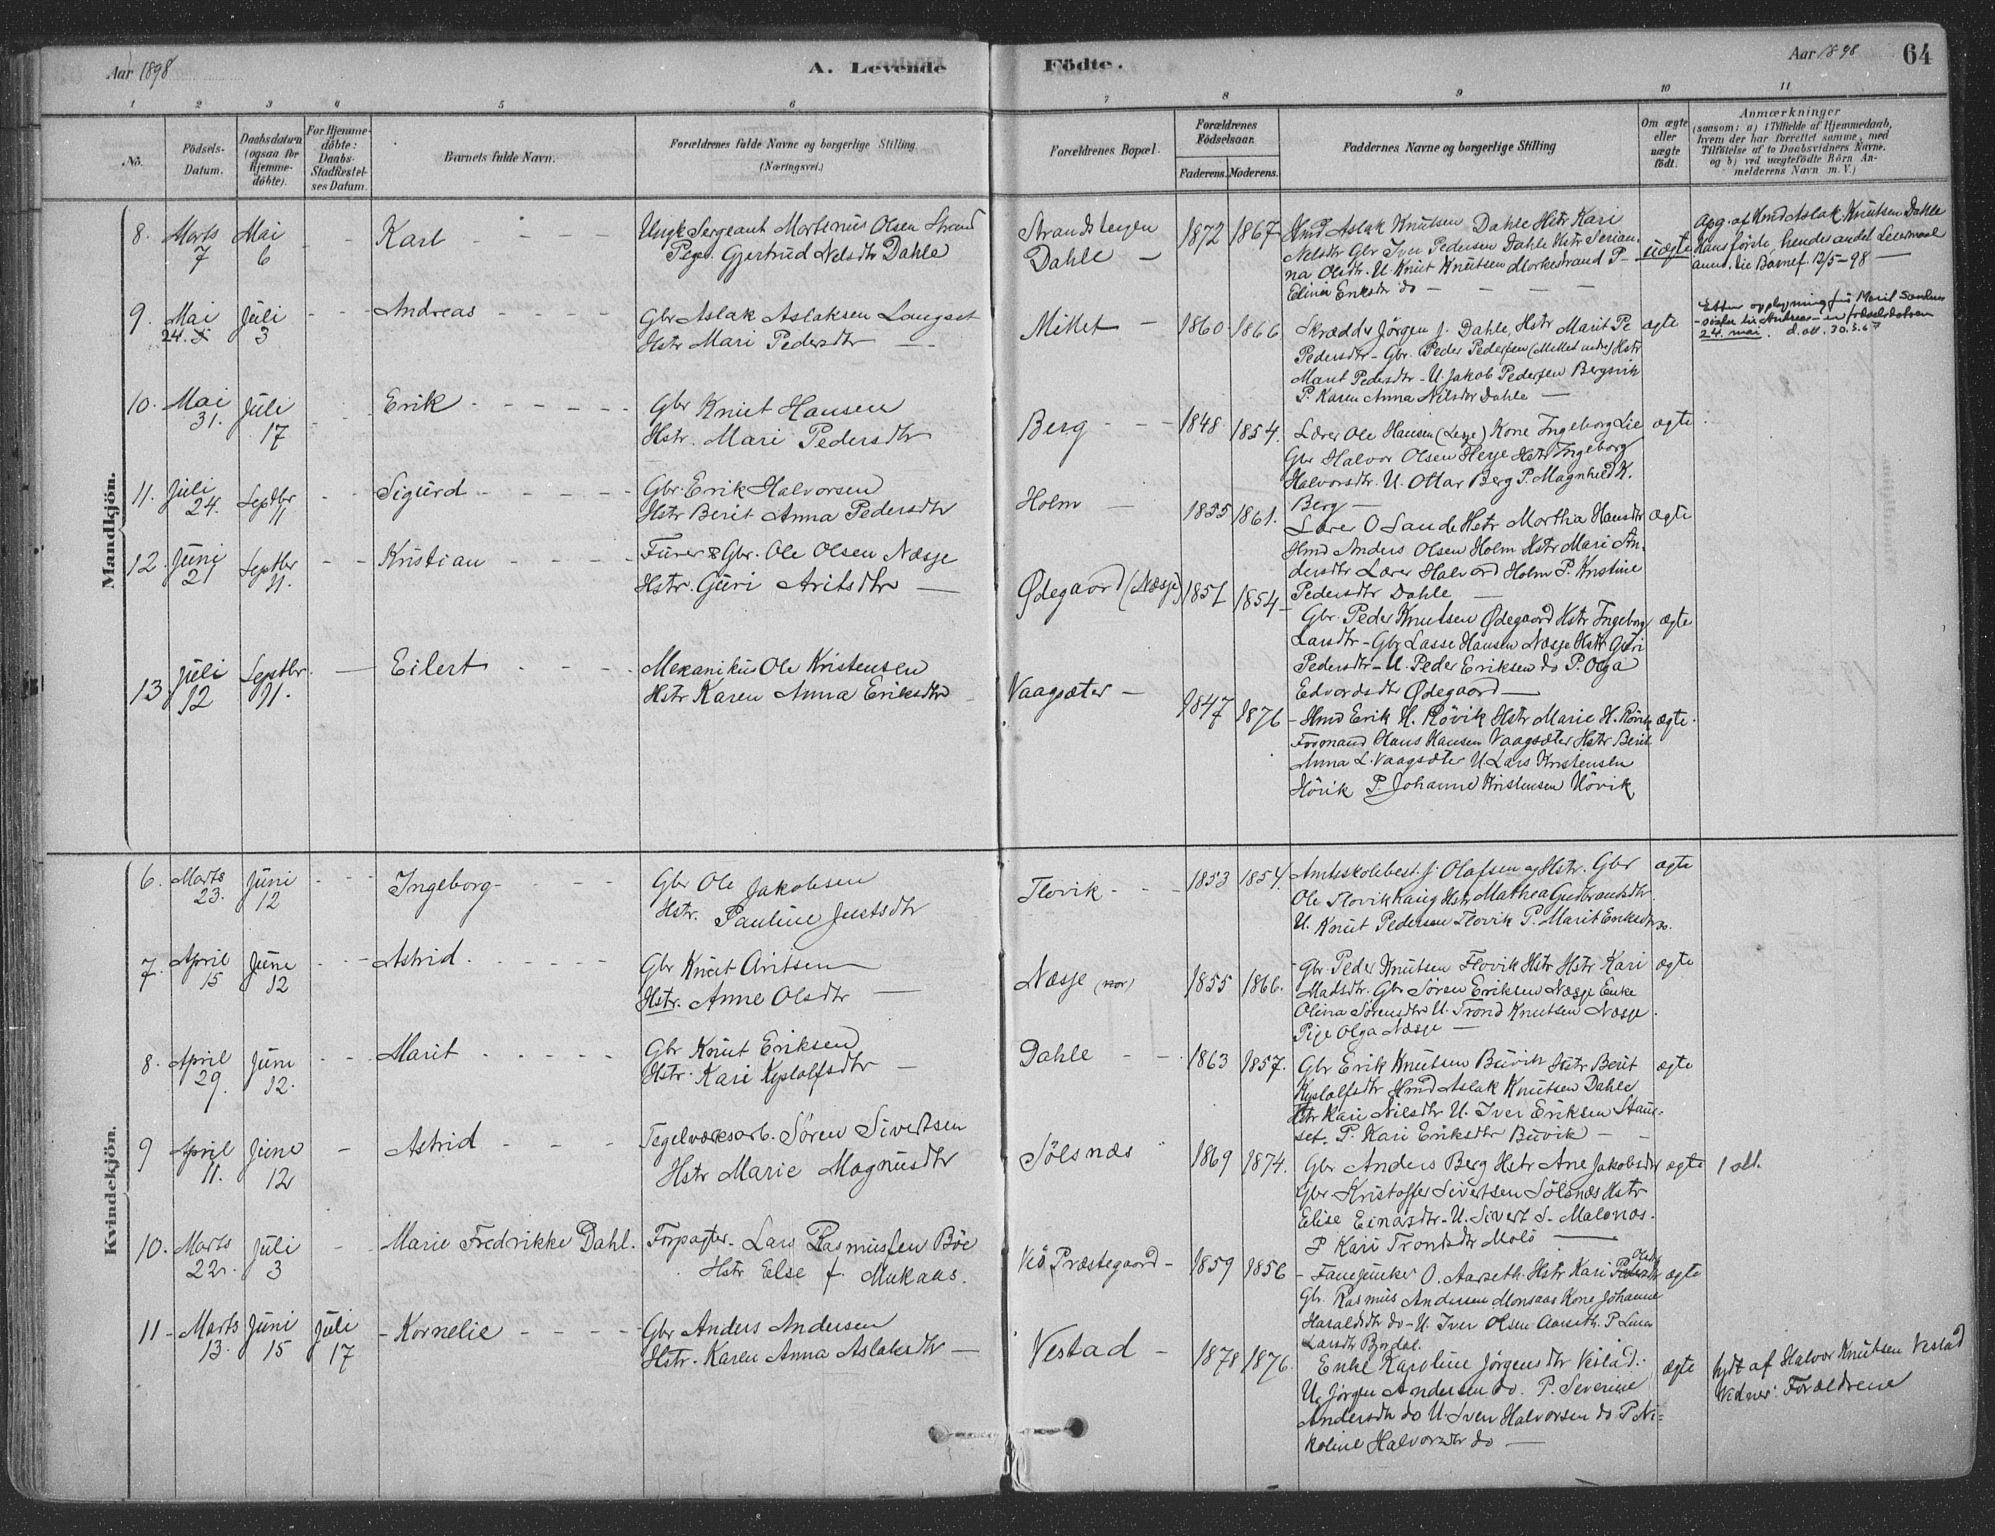 Aar 1898
A. Levende Födte.
Aar 1898
64
1 2 3 4 5 6 7 8 9 10 11
No.
Födsels-Datum.
Daabsdatum (ogsaa for Hjemmedöbte).
For Hjemmedöbte: Daabs-Stadfestelses Datum.
Barnets fulde Navn.
Forældrenes fulde Navne og borgerlige Stilling (Næringsvei.)
Forældrenes Bopæl.
Forældrenes Födselsaar.
Faderens. Moderens.
Faddernes Navne og borgerlige Stilling
Om ægte eller uægte födt.
Anmærkninger
(saasom: a) i Tilfælde af Hjemmedaab,
hvem der har forrettet samme, med
Tilföielse af to Daabsvidners Navne.
og b) ved uægtefödte Börn Anmelderens Navn m. V.)
Mandkjön.
8. Marts 7 Mai 6 Karl
Ungk Sergeant Martinius Olsen Strand
Pige Gjertrud Nelsdtr Dahle
Dahle
1872 1867
Hmd Aslak Knutsen Dahle Hstr Kari
Nelsdtr Gbr Iver Pedersen Dahle Hstr Serianna
Olsdtr. U. Knut Knutsen Morkestrand P
Elina Eriksdtr do
uægte
Opg. af Hmd Aslak Knutsen Dahle
Hans første hendes andet Leiermaal
9. Mai 24. Juli 3 Andreas
Gbr Aslak Aslaksen Langset
Hstr Mari Pedersdtr
Mittet
1860 1866
Skrædder Jørgen J. Dahle, Hstr Marit Pe
Pedersdtr - Gbr. Peder Pedersen (Mittet nedre) Hstr
Marit Pedersdtr - U. Jakob Pedersen Bergsvik
P. Karen Anna Nilsdtr Dahle
ægte
24. mai
10. Mai 31. Juli 17 Erik
Gbr Knut Hansen
Hstr. Mari Pedersdtr
Berg
1848 1854.
Lærer Ole Hansen (Lesje) Kone Ingeborg Lie
Gbr Halvor Olsen Heye Hstr Ingeborg
Halvorsdtr. U. Ottar Berg P. Magnhild K.
Berg
ægte
11. Juli 24. Septbr 11 Sigurd
Gbr. Erik Halvorsen
Hstr Berit Anna Pedersdtr
Holm
1855 1861.
Lærer O Sande Hstr Martha Hansdtr
Hmd Anders Olsen Holm Hstr Mari Andersdtr
Lærer Halvord Holm P. Kristine
Pedersdtr Dahle
ægte
12. Juni 21 Septbr 11. Kristian
Furer & Gbr. Ole Olsen Næsje
Hstr. Guri Aritsdtr
Ødegaard (Næsje)
1851 1854
Gbr. Peder Knutsen Ødegaard Hstr Ingeborg
Larsdtr - Gbr Lasse Hansen Næsje Hstr Guri
Pedersdtr - U. Peder Eriksen do P. Olga
Edvardsdtr Ødegaard
ægte
13 Juli 12 Septbr. 11. Eilert
Mekanikus Ole Kristensen
Hstr Karen Anna Eriksdtr
Vaagsæter
1847 1876
Hmd Erik H. Rövik Hstr Marie H. Rövik
Formand Hans Hansen Vaagsæter Hstr Berit
Anna L. Vaagsæter U. Lars Kristensen
Hövik P. Johanne Kristensen Hövik
ægte.
Kvindekjön.
6. Marts 23. Juni 12 Ingeborg
Gbr Ole Jakobsen
Hstr. Pauline Justsdtr
Flovik
1853 1854.
Amtskolebest. J. Olafsen og Hstr. Gbr
Ole Flovikhaug Hstr Mathea Gudbrandsdtr.
U. Knut Pedersen Flovik P. Marit Eriksdtr do.
ægte
7. April 15 Juni 12 Astrid.
Gbr Knut Aritsen
Hstr. Anne Olsdtr
Næsje (nor)
1855 1866.
Gbr. Peder Knutsen Flovik Hstr Hstr Kari
Madsdtr. Gbr Sören Eriksen Næsje Enke
Olina Sörensdtr U. Trond Knutsen Næsje.
Pige Olga Næsje
ægte
8. April 29. Juni 12. Marit
Gbr Knut Eriksen
Hstr. Kari Kystolfsdtr
Dahle
1863 1857.
Gbr Erik Knutsen Buvik Hstr Berit
Kystolfsdtr Hmd Aslak Knutsen Dahle
Hstr Kari Nilsdtr U. Iver Eriksen Stauset.
P. Kari Eriksdtr Buvik
ægte
9 April 11. Juni 12 Astrid
Teglværksarb. Sören Sivertsen
Hstr Marie Magnusdtr
Sölsnæs
1869 1874.
Gbr Anders Berg Hstr Ane Jakobsdtr
Gbr Kristoffer Sivertsen Sölsnæs Hstr
Elise Einarsdtr - U. Sivert S. Malonæs.
P Kari Trondsdtr Molö
ægte
10. Marts 22. Juli 3 Marie Fredrikke Dahl.
Forpagter Lars Rasmussen Böe
Hstr Else f. Mukaas.
Veö Præstegaard
1859 1856
Fanejunker O. Aarseth. Hstr Kari Olsdtr
Gb. Rasmus Andersen Monsaas Kone Johanne
Haraldsdtr do - U. Iver Olsen Aarseth. P Lina
Larsdtr
ægte
11 Marts 13. Juni 15 Juli 17 Kornelie
Gbr Anders Andersen
Hstr. Karen Anna Aslaksdtr
Vestad
1878 1876.
Enke Karoline Jørgensdtr Vestad.
U. Jörgen Andersen do. P. Severine
Andersdtr do U. Iver Halvorsen do P. Nikoline
Halvorsdtr do
ægte
hjdt af Halvor Knutsen Vestad
Vidner: Forældrene